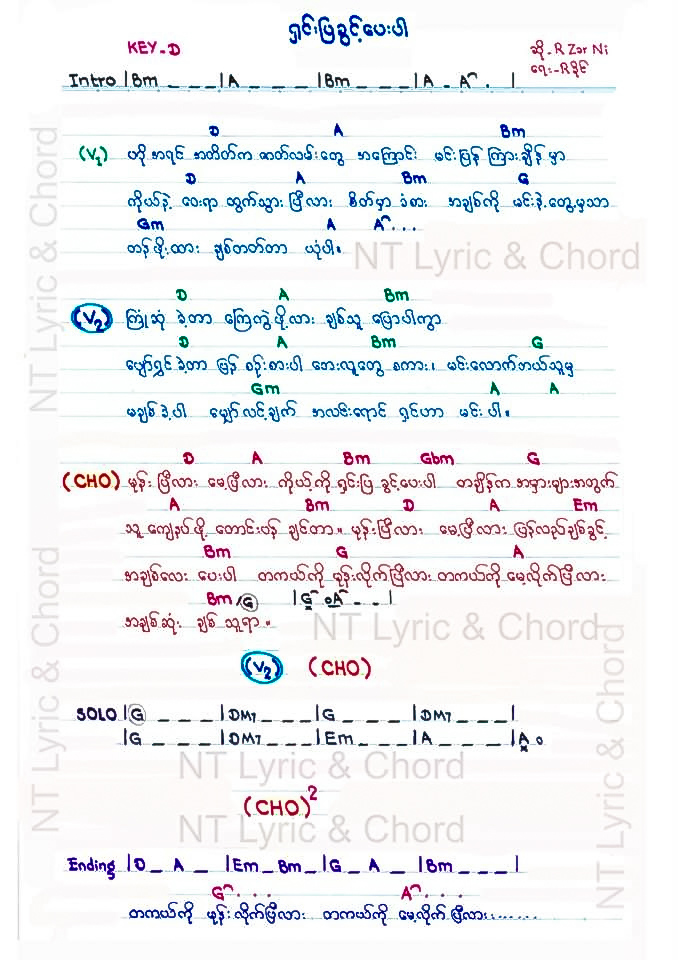 ရှင်းပြခွင့်ပေးပါ
KEY-D
ဆို - R Zar Ni
ရေး - R ခိုင်
Intro |Bm _ _ _ |A _ _ _ |Bm _ _ _ |A - A . |
D A Bm
(V1) ဟို အရင် အတိတ်က ဇာတ်လမ်းတွေ အကြောင်း မင်းပြန် ကြားချိန် မှာ
D A Bm G
ကိုယ်နဲ့ ဝေးရာ ထွက်သွား ပြီလား စိတ်မှာ ခံစား အချစ်ကို မင်းနဲ့တွေ့မှသာ
Gm A A...
တန်ဖိုးထား ချစ်တတ်တာ ယုံပါ။
D A Bm
(V2) ကြုံဆုံ ခဲ့တာ ကြေကွဲဖို့လား ချစ်သူ ပြောပါကွာ
D A Bm G
ပျော်ရွှင်ခဲ့တာ ပြန် စဉ်းစားပါ ဘေးလူတွေ စကား၊ မင်းလောက်ဘယ်သူမှ
Gm A A
မချစ်ခဲ့ပါ မျှော်လင့်ချက် အလင်းရောင် ရှင်ဟာ မင်းပါ။
D A Bm Gbm G
(CHO) မုန်းပြီလား မေ့ပြီလား ကိုယ့်ကို ရှင်းပြ ခွင့်ပေးပါ တချိန်က အမှားများအတွက်
A Bm D A Em
သူ ကျေနပ်ဖို့ တောင်းပန် ချင်တာ။ မုန်းပြီလား မေ့ပြီလား ပြန်လည်ချစ်ခွင့်
Bm G A
အချစ်လေး ပေးပါ တကယ်ကို မုန်းလိုက်ပြီလား တကယ်ကို မေ့လိုက်ပြီလား
Bm/G |G A _ _ |
အချစ်ဆုံး ချစ်သူရာ။
(V2) (CHO)
SOLO |G _ _ _ |DM7 _ _ _ |G _ _ _ |DM7 _ _ _ |
|G _ _ _ |DM7 _ _ _ |Em _ _ _ |A _ _ _ |A
(CHO)2
Ending |D _ A _ |Em _ Bm _ |G _ A _ |Bm _ _ _ |
G... A...
တကယ်ကို မုန်းလိုက်ပြီလား တကယ်ကို မေ့လိုက်ပြီလား.........
NT Lyric & Chord
NT Lyric & Chord
NT Lyric & Chord
NT Lyric & Chord
NT Lyric & Chord
NT Lyric & Chord
NT Lyric & Chord